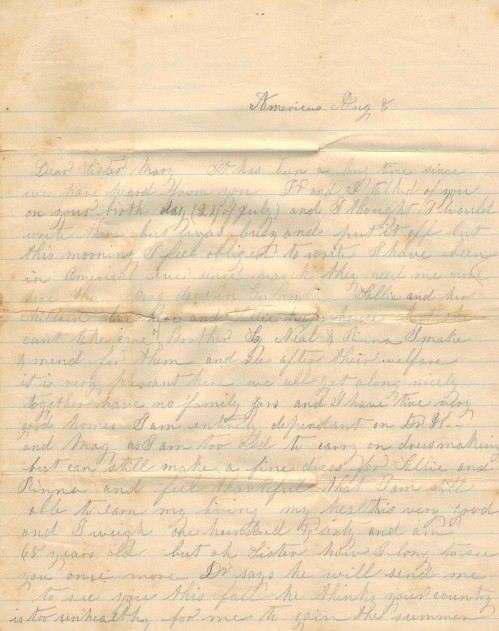 Americus Aug 8
Dear Sister Mary It has been a long time since
we have heard from you Dr and I talked of you
on your birth day (24 of July) and I thought I would
write then but was busy and put it off but
this morning I feel obliged to write I have been
in Americus ever since march they need me more
here than Mag does in Sallie and her
children
cant take care Brother Neal & Pinna I make
& mend for them and see after their welfare
it is very pleasant here we all get along nicely
together have no family jars and I have two very
good homes I am entirely dependant on Dr H.
and Mag as I am too old to carry on dressmaking
but can still make a fine dress for Sallie and
Pinna and feel thankful that I am still
able to earn my living my health is very good
and I weigh one hundred & sixty and am
65 years old but oh Sister how I long to see
you once more Dr says he will send me
to see you this fall he thinks your country
is too unhealthy for me to go in the summer